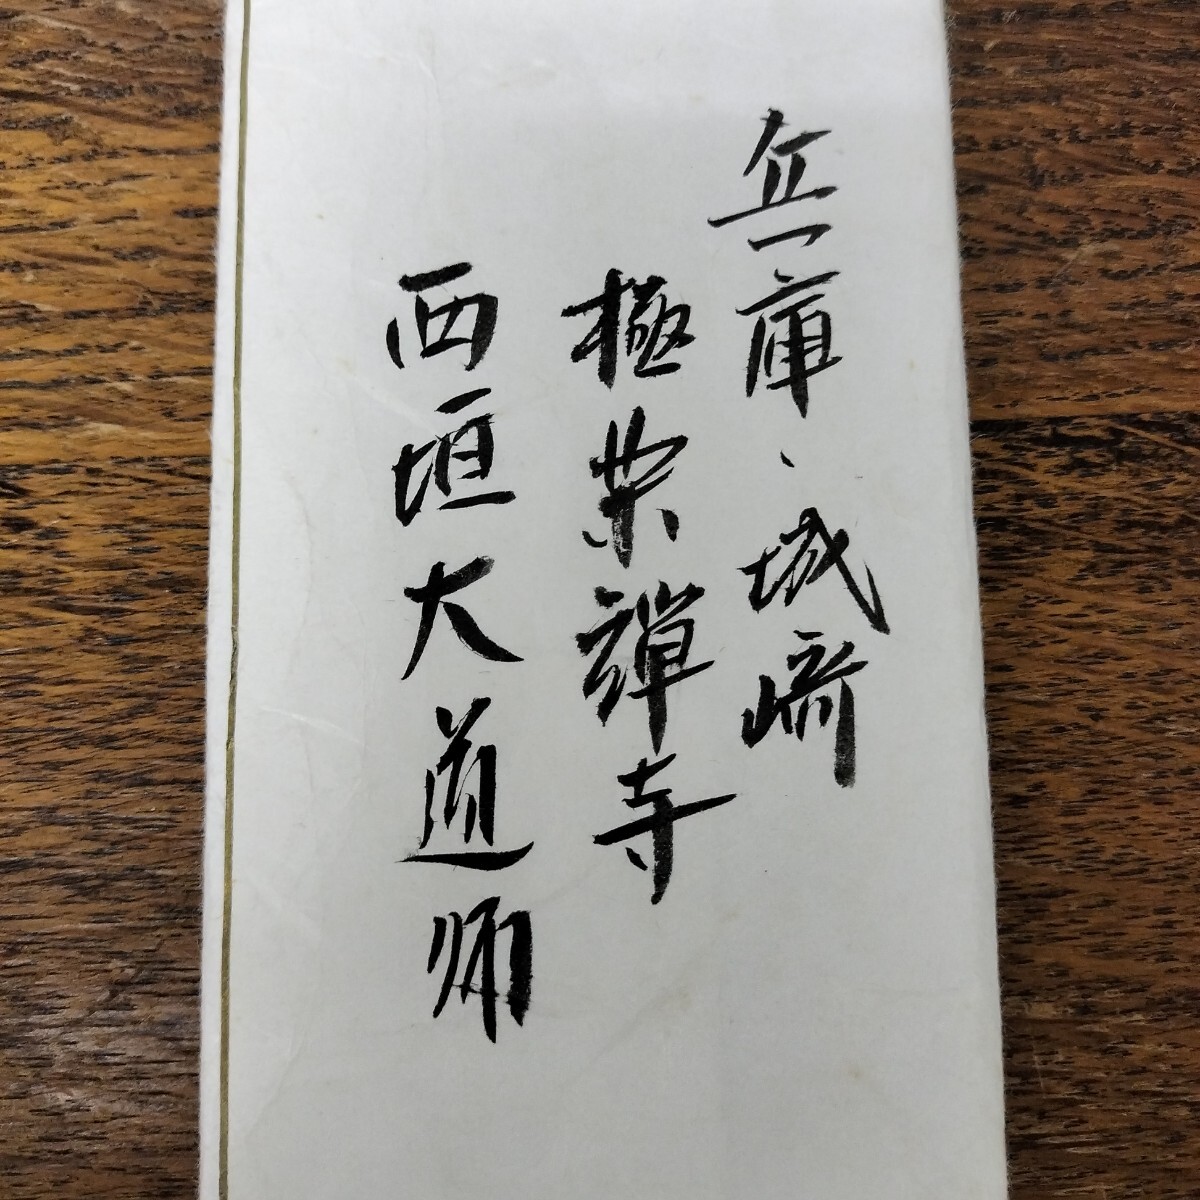 兵庫、城崎
極楽禅寺
西垣大道師